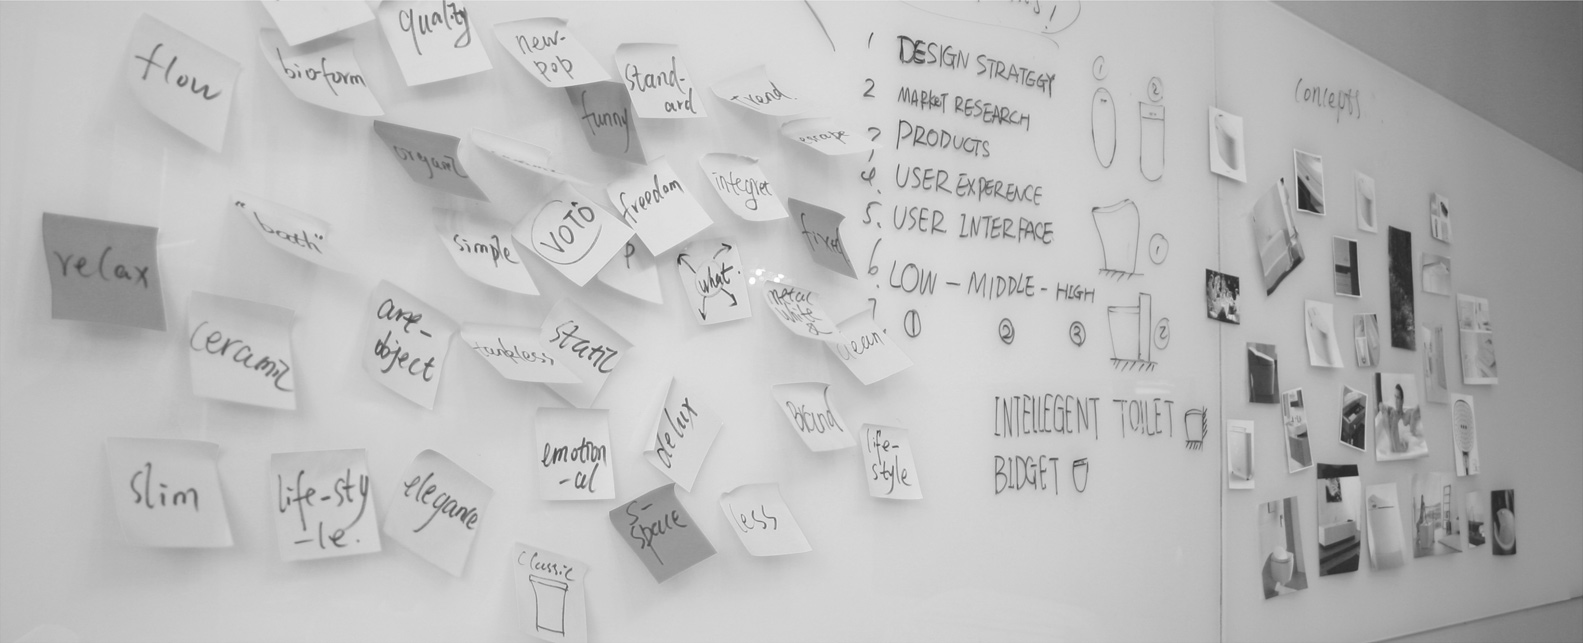 quality
flow
bio-form
new-
pop
stand-
ard
trend
funny
escape
organic
freedom
integret
"bath"
simple
VOTO
P
relax
what
metal
white
clean
ceramic
are-
object
tankless
static
emotion
-al
delux
life-
style
slim
life-sty
-le.
elegance
S-
space
less
classic
1 DESIGN STRATEGY
2 MARKET RESEARCH
3 PRODUCTS
4. USER EXPERENCE
5. USER INTERFACE
6. LOW - MIDDLE - HIGH
7
1 2 3
1
2
1
2
INTELLEGENT TOILET
BIDGET
Concepts